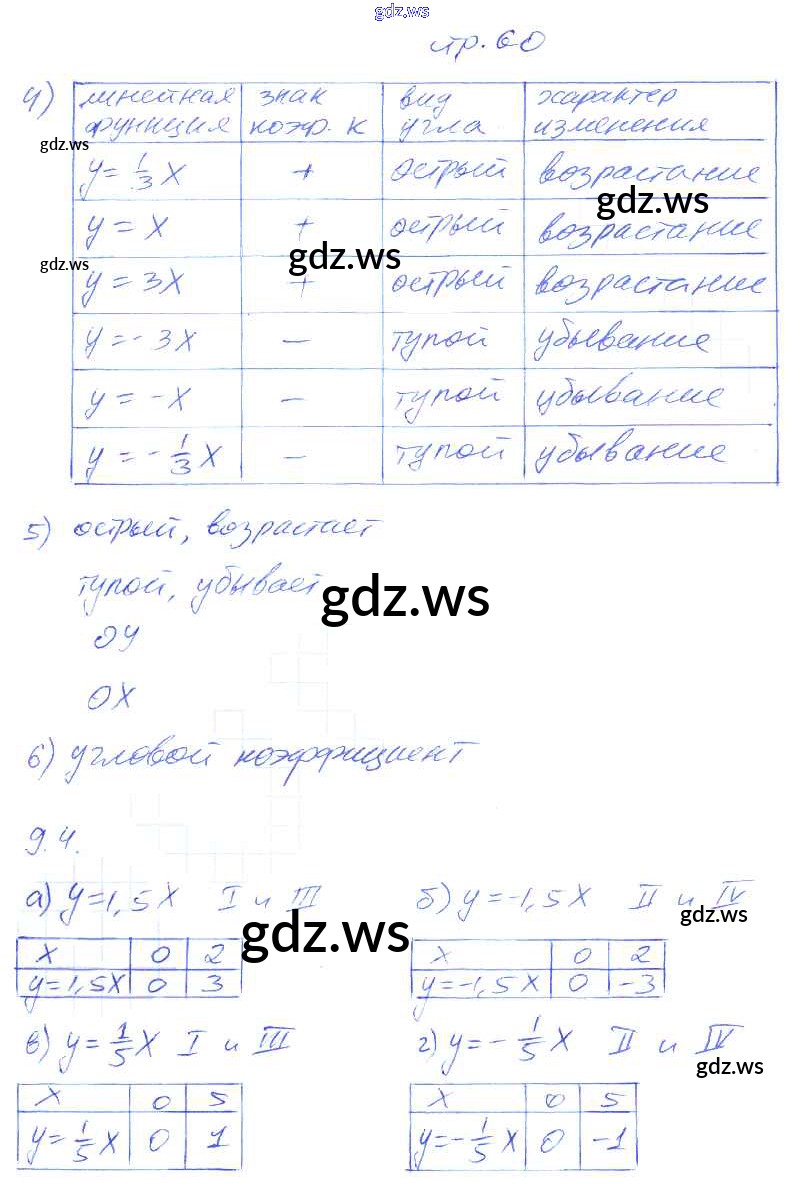 gdz.ws
стр. 60
4) линейная функция | знак коэф. к | вид угла | характер изменения
gdz.ws
y = 1/3 x | + | острый | возрастание
gdz.ws
y = x | + | острый | возрастание
gdz.ws
gdz.ws
y = 3x | + | острый | возрастание
y = - 3x | — | тупой | убывание
y = -x | — | тупой | убывание
y = - 1/3 x | — | тупой | убывание
5) острый, возрастает
тупой, убывает
gdz.ws
ОУ
ОХ
6) угловой коэффициент
9.4.
а) y = 1,5x I и III б) y = -1,5x II и IV
gdz.ws
gdz.ws
x | 0 | 2 x | 0 | 2
y = 1,5x | 0 | 3 y = -1,5x | 0 | -3
в) y = 1/5 x I и III г) y = - 1/5 x II и IV
gdz.ws
x | 0 | 5 x | 0 | 5
y = 1/5 x | 0 | 1 y = - 1/5 x | 0 | -1